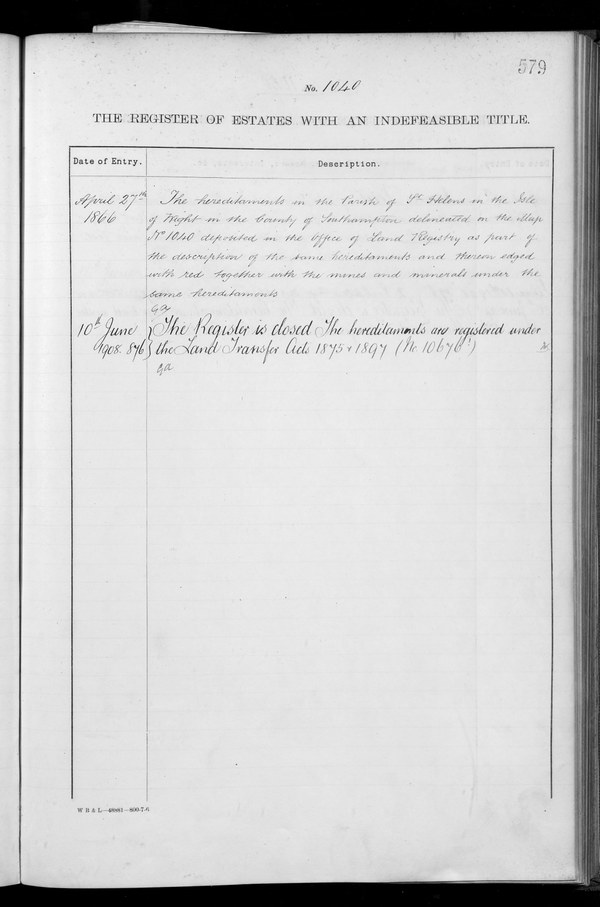 579
No. 1040
THE REGISTER OF ESTATES WITH AN INDEFEASIBLE TITLE.
Date of Entry.
Description.
April 27th
1866
The hereditaments in the Parish of St. Helens in the Isle
of Wight in the County of Southampton delineated on the Map
No 1040 deposited in the Office of Land Registry as part of
the description of the same hereditaments and thereon edged
with red together with the mines and minerals under the
same hereditaments
10th June
1908. 876
The Register is closed The hereditaments are registered under
the Land Transfer Acts 1875 & 1897 (No 10676
ga
W B & L—48881—800-7-6